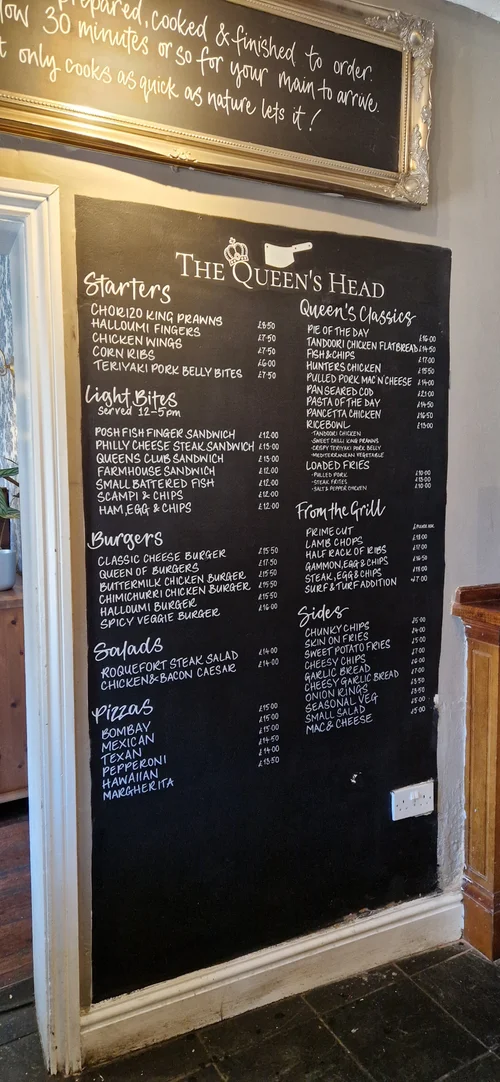 prepared, cooked & finished to order.
30 minutes or so for your main to arrive.
only cooks as quick as nature lets it!
THE QUEEN'S HEAD
Starters
CHORIZO KING PRAWNS £8.50
HALLOUMI FINGERS £7.50
CHICKEN WINGS £7.50
CORN RIBS £6.00
TERIYAKI PORK BELLY BITES £7.50
Light Bites
Served 12-5pm
POSH FISH FINGER SANDWICH £12.00
PHILLY CHEESE STEAK SANDWICH £15.00
QUEENS CLUB SANDWICH £13.00
FARMHOUSE SANDWICH £12.00
SMALL BATTERED FISH £12.00
SCAMPI & CHIPS £12.00
HAM, EGG & CHIPS £12.00
Burgers
CLASSIC CHEESE BURGER £15.50
QUEEN OF BURGERS £17.50
BUTTERMILK CHICKEN BURGER £15.50
CHIMICHURRI CHICKEN BURGER £15.50
HALLOUMI BURGER £15.50
SPICY VEGGIE BURGER £16.00
Salads
ROQUEFORT STEAK SALAD £14.00
CHICKEN & BACON CAESAR £14.00
Pizzas
BOMBAY £15.00
MEXICAN £15.00
TEXAN £15.00
PEPPERONI £14.50
HAWAIIAN £14.00
MARGHERITA £13.50
Queen's Classics
PIE OF THE DAY £16.00
TANDOORI CHICKEN FLATBREAD £14.50
FISH & CHIPS £17.00
HUNTERS CHICKEN £15.50
PULLED PORK MAC'N'CHEESE £14.00
PAN SEARED COD £21.00
PASTA OF THE DAY £14.50
PANCETTA CHICKEN £16.50
RICE BOWL £13.00
-TANDOORI CHICKEN
-SWEET CHILLI KING PRAWNS
-CRISPY TERIYAKI PORK BELLY
-MEDITERRANEAN VEGETABLE
LOADED FRIES
-PULLED PORK £10.00
-STEAK FRITES £13.00
-SALT & PEPPER CHICKEN £10.00
From the Grill
PRIME CUT
LAMB CHOPS £18.00
HALF RACK OF RIBS £17.00
GAMMON, EGG & CHIPS £16.50
STEAK, EGG & CHIPS £18.00
SURF & TURF ADDITION £7.00
Sides
CHUNKY CHIPS £5.00
SKIN ON FRIES £4.00
SWEET POTATO FRIES £5.00
CHEESY CHIPS
GARLIC BREAD
CHEESY GARLIC BREAD
ONION RINGS
SEASONAL VEG
SMALL SALAD £5.00
MAC & CHEESE £5.00